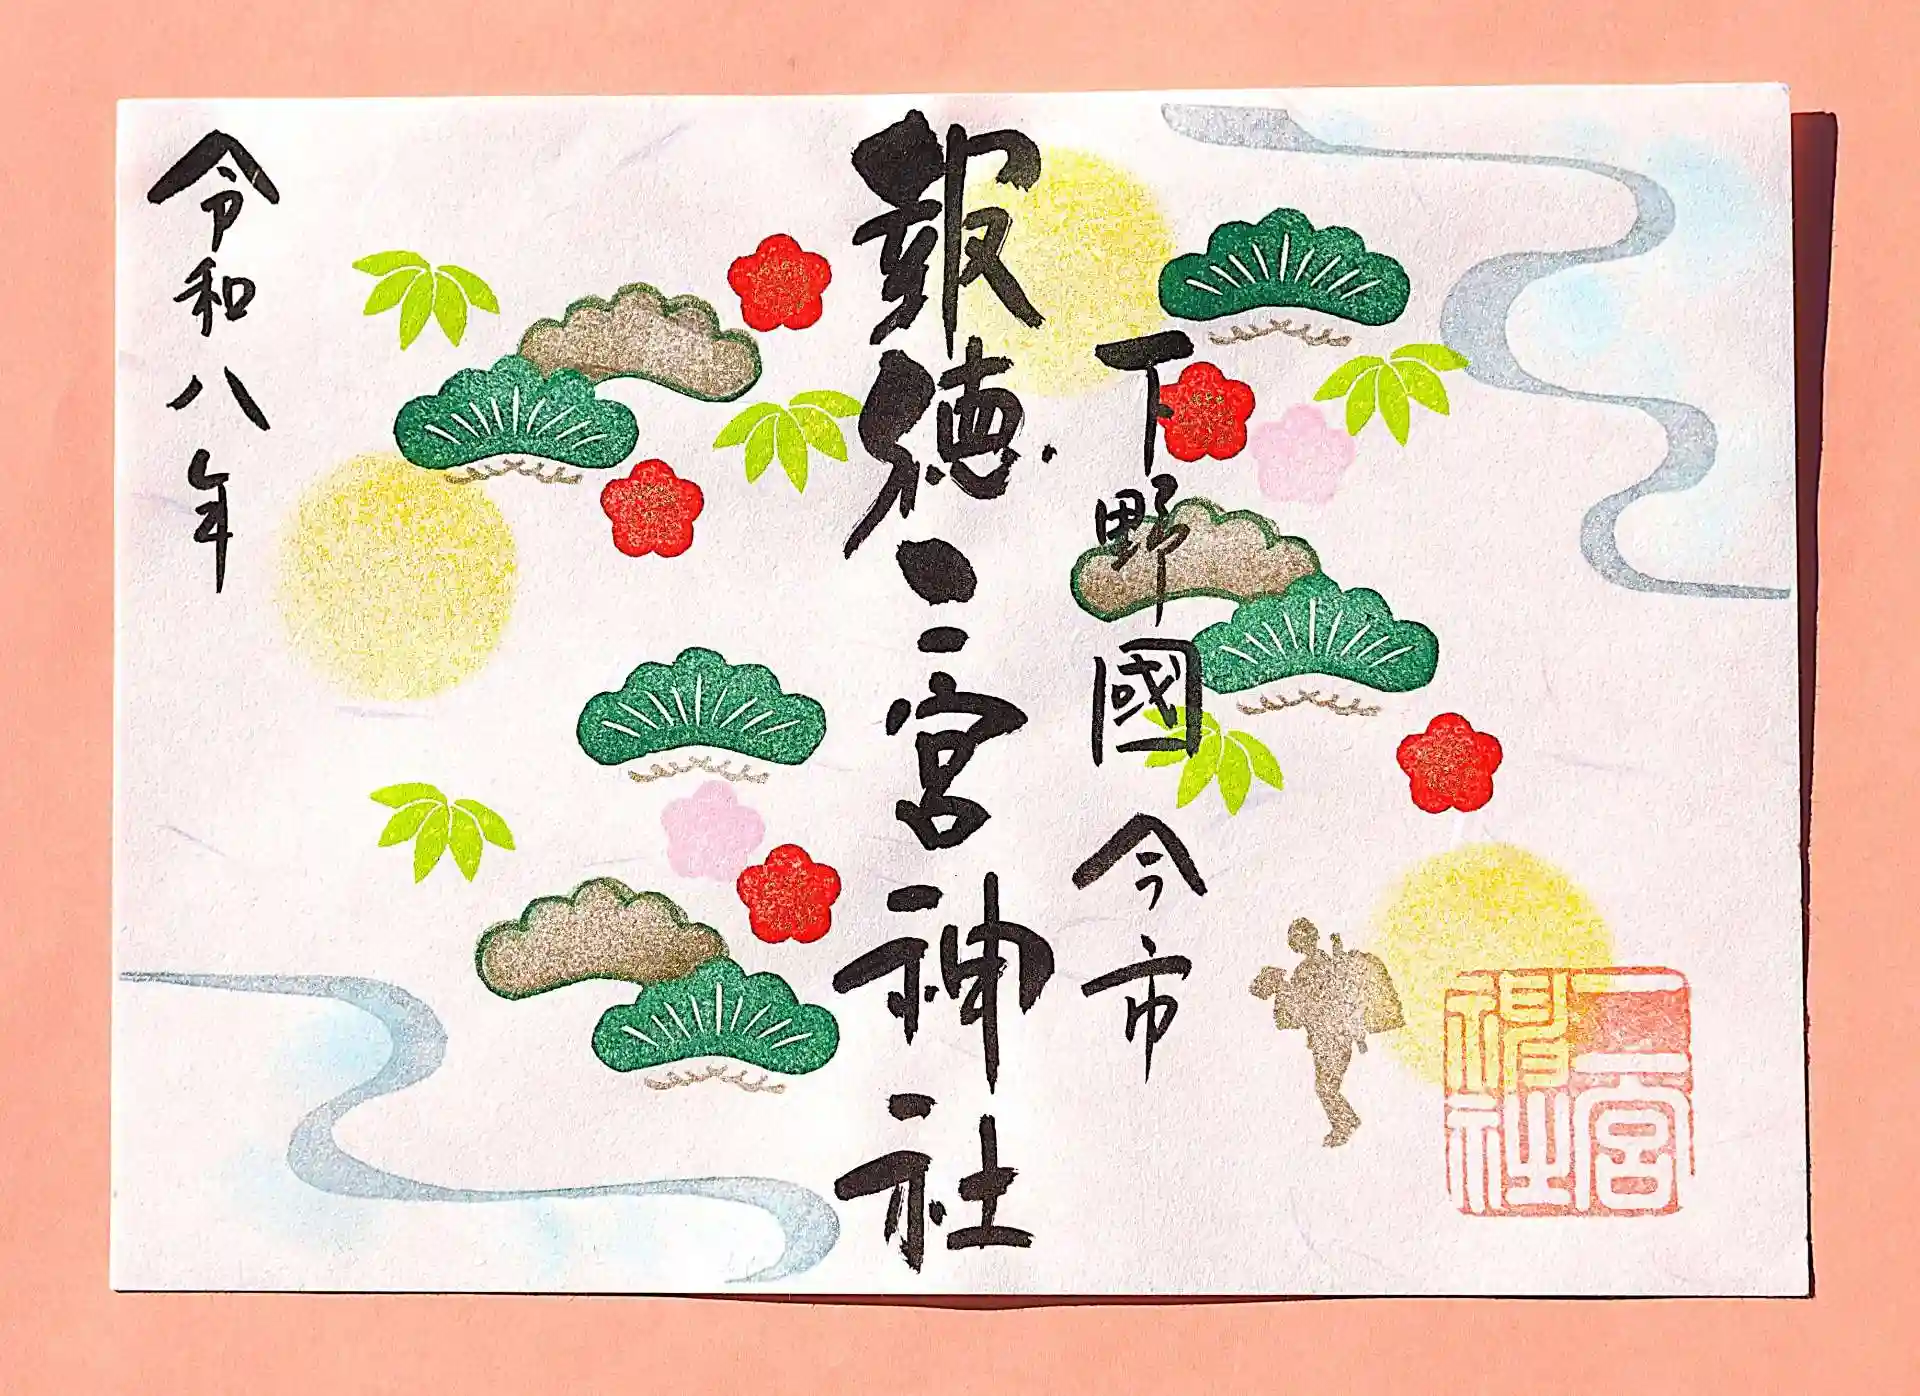 下野國今市
報徳二宮神社
令和八年
二宮
神社